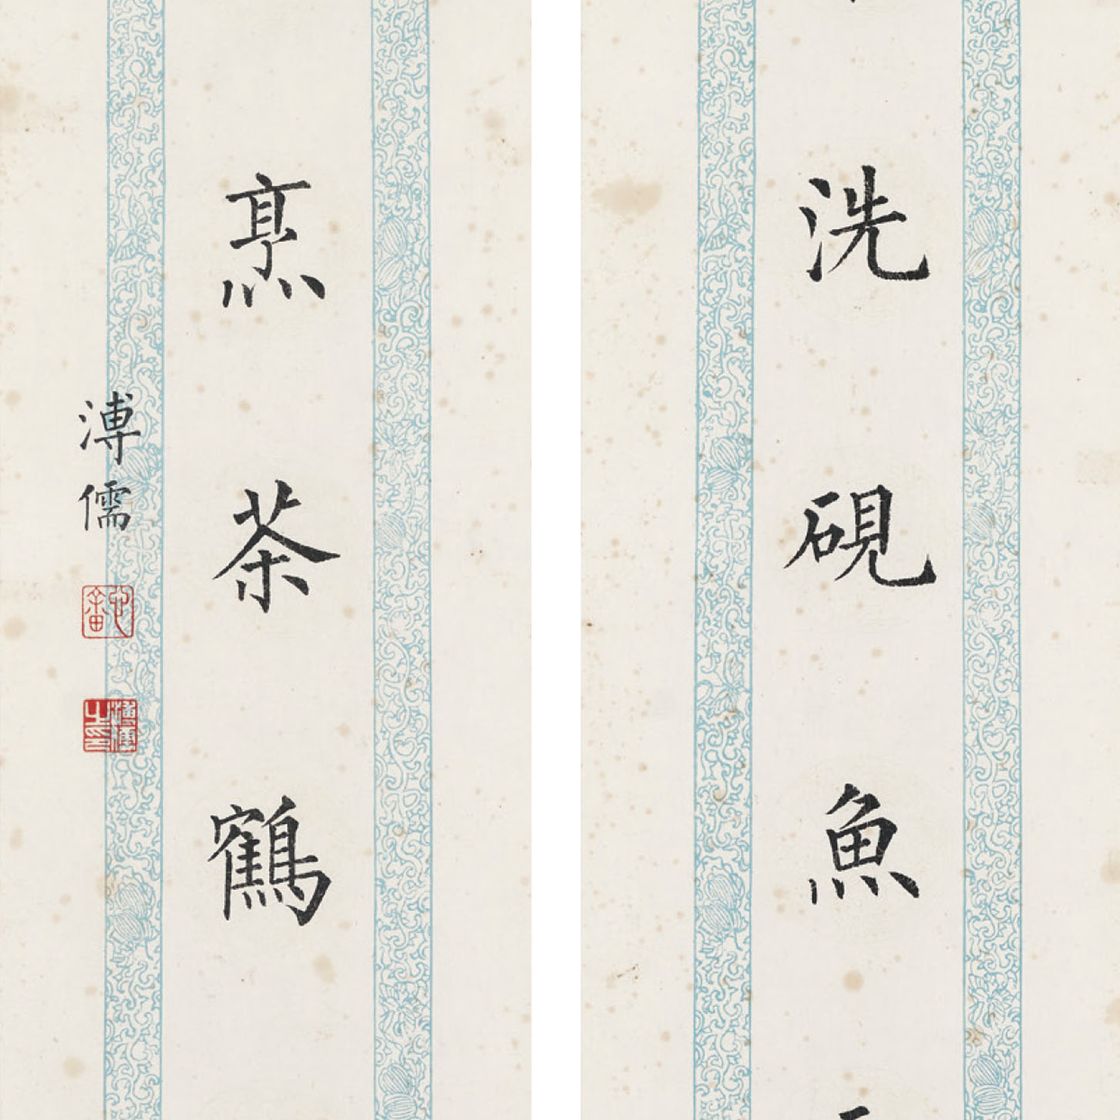 洗硯魚
烹茶鶴
溥儒
心畬